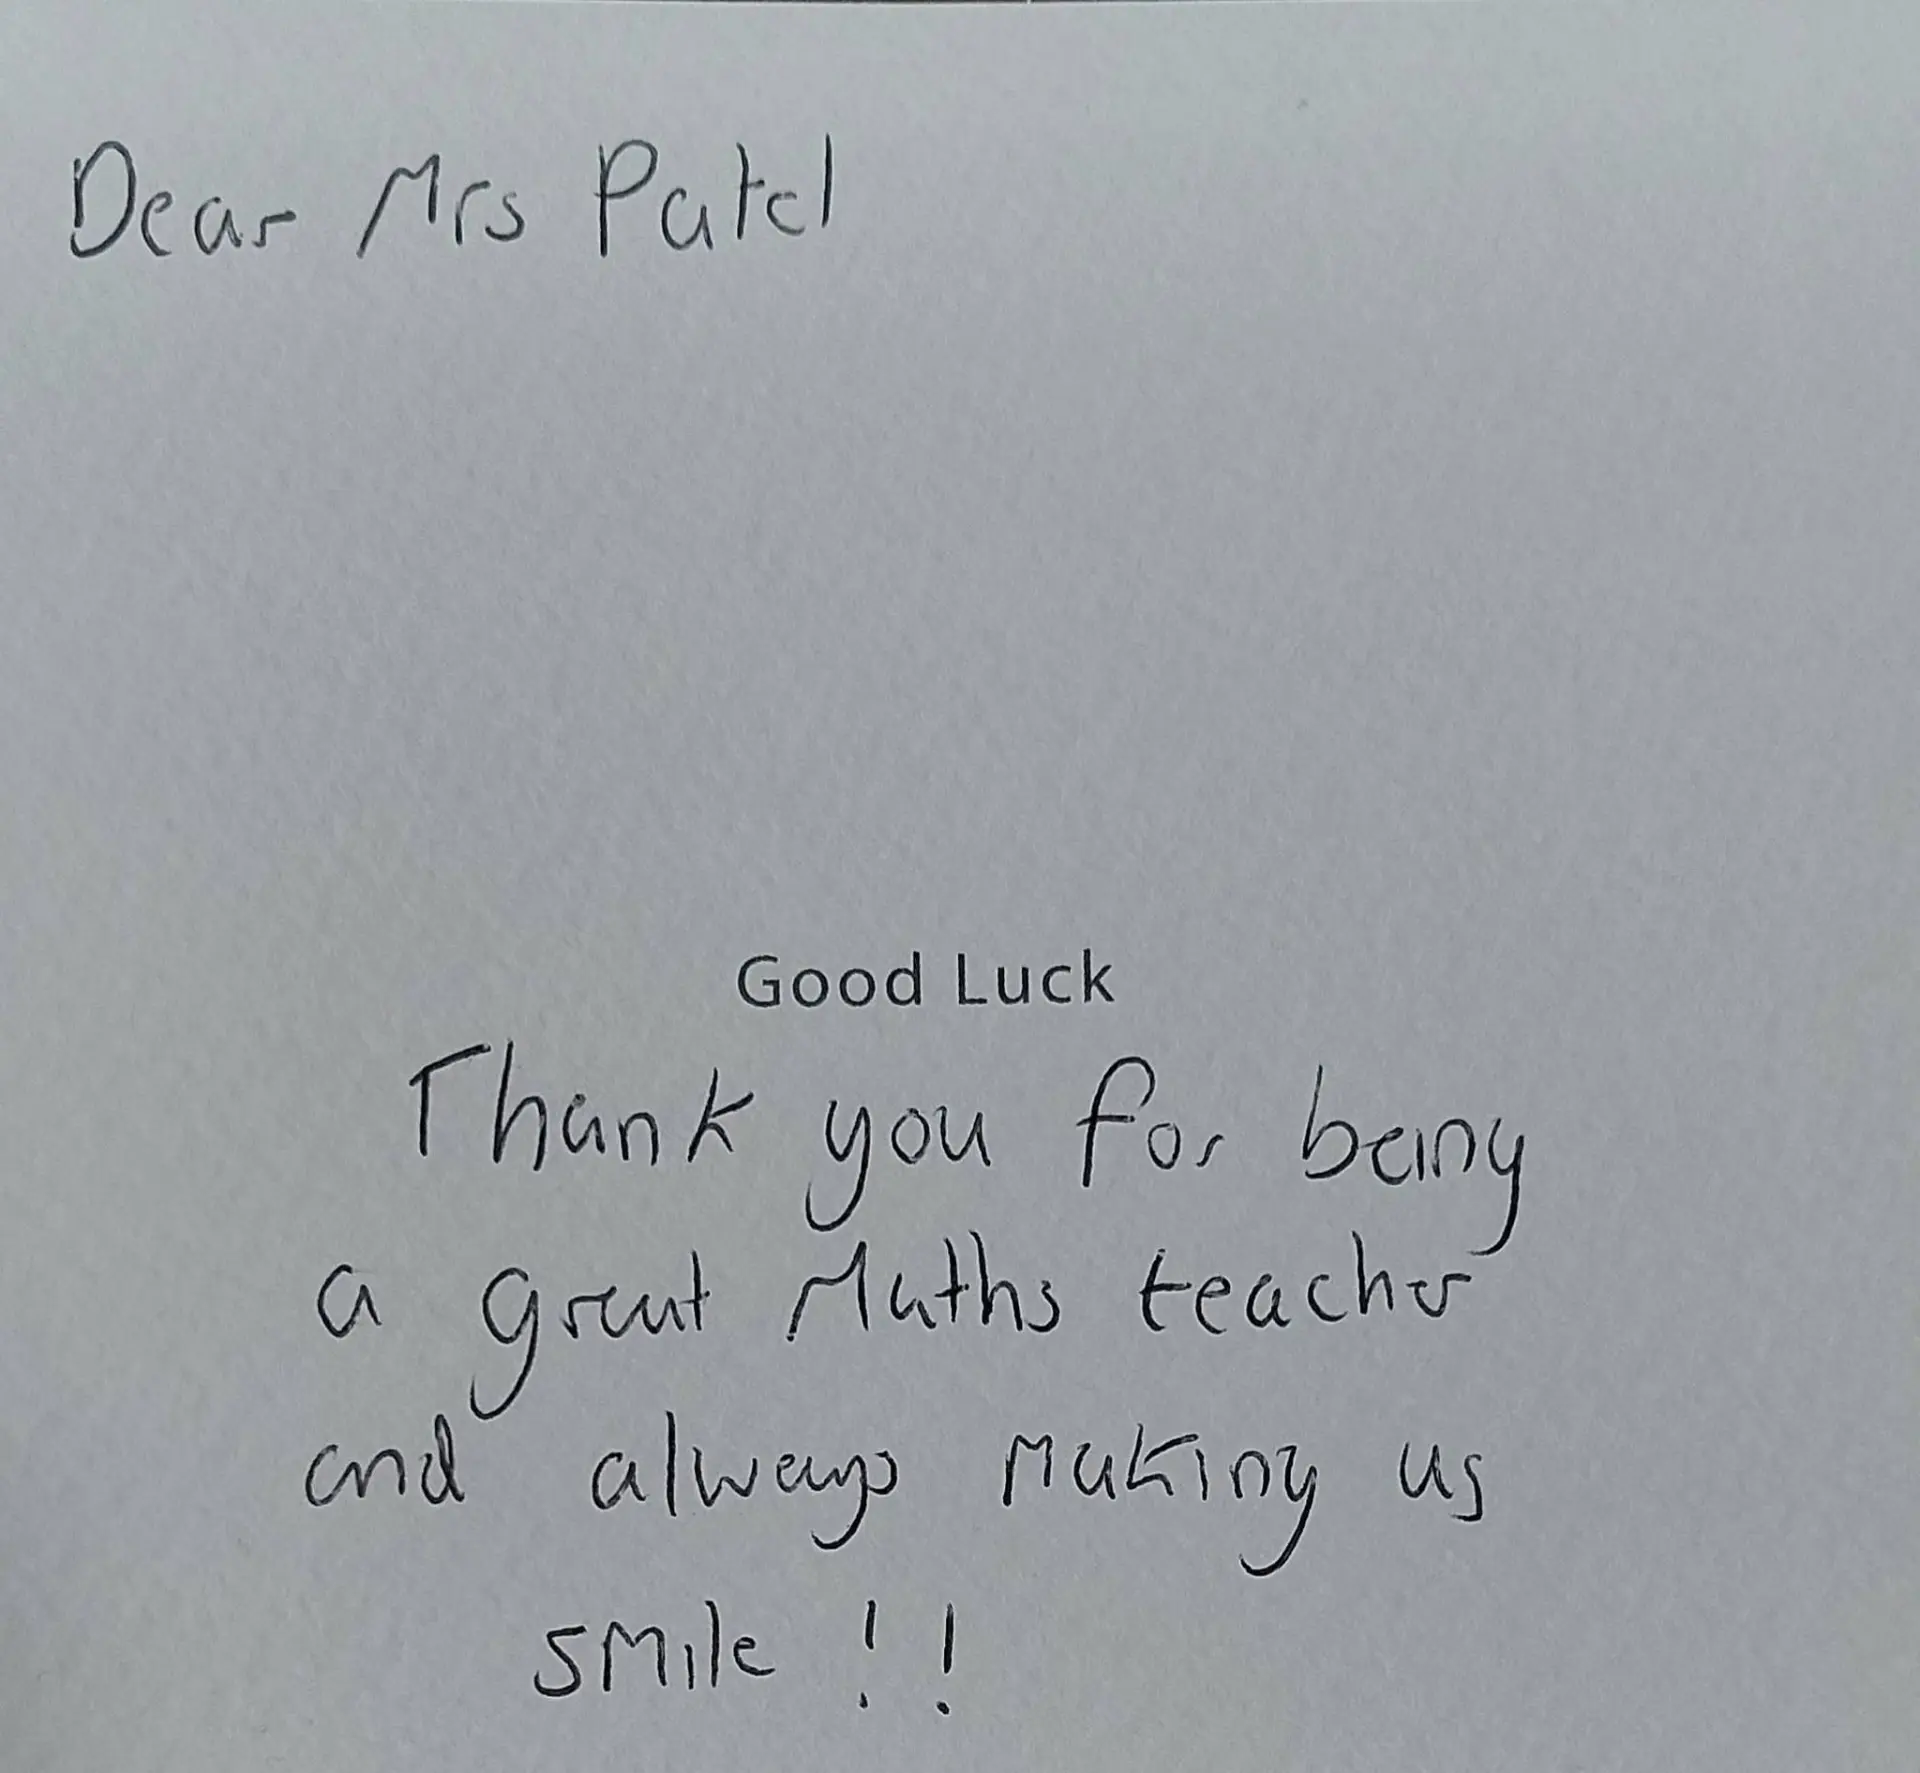 Dear Mrs Patel
Good Luck
Thank you for being
a great Maths teacher
and always making us
smile !!